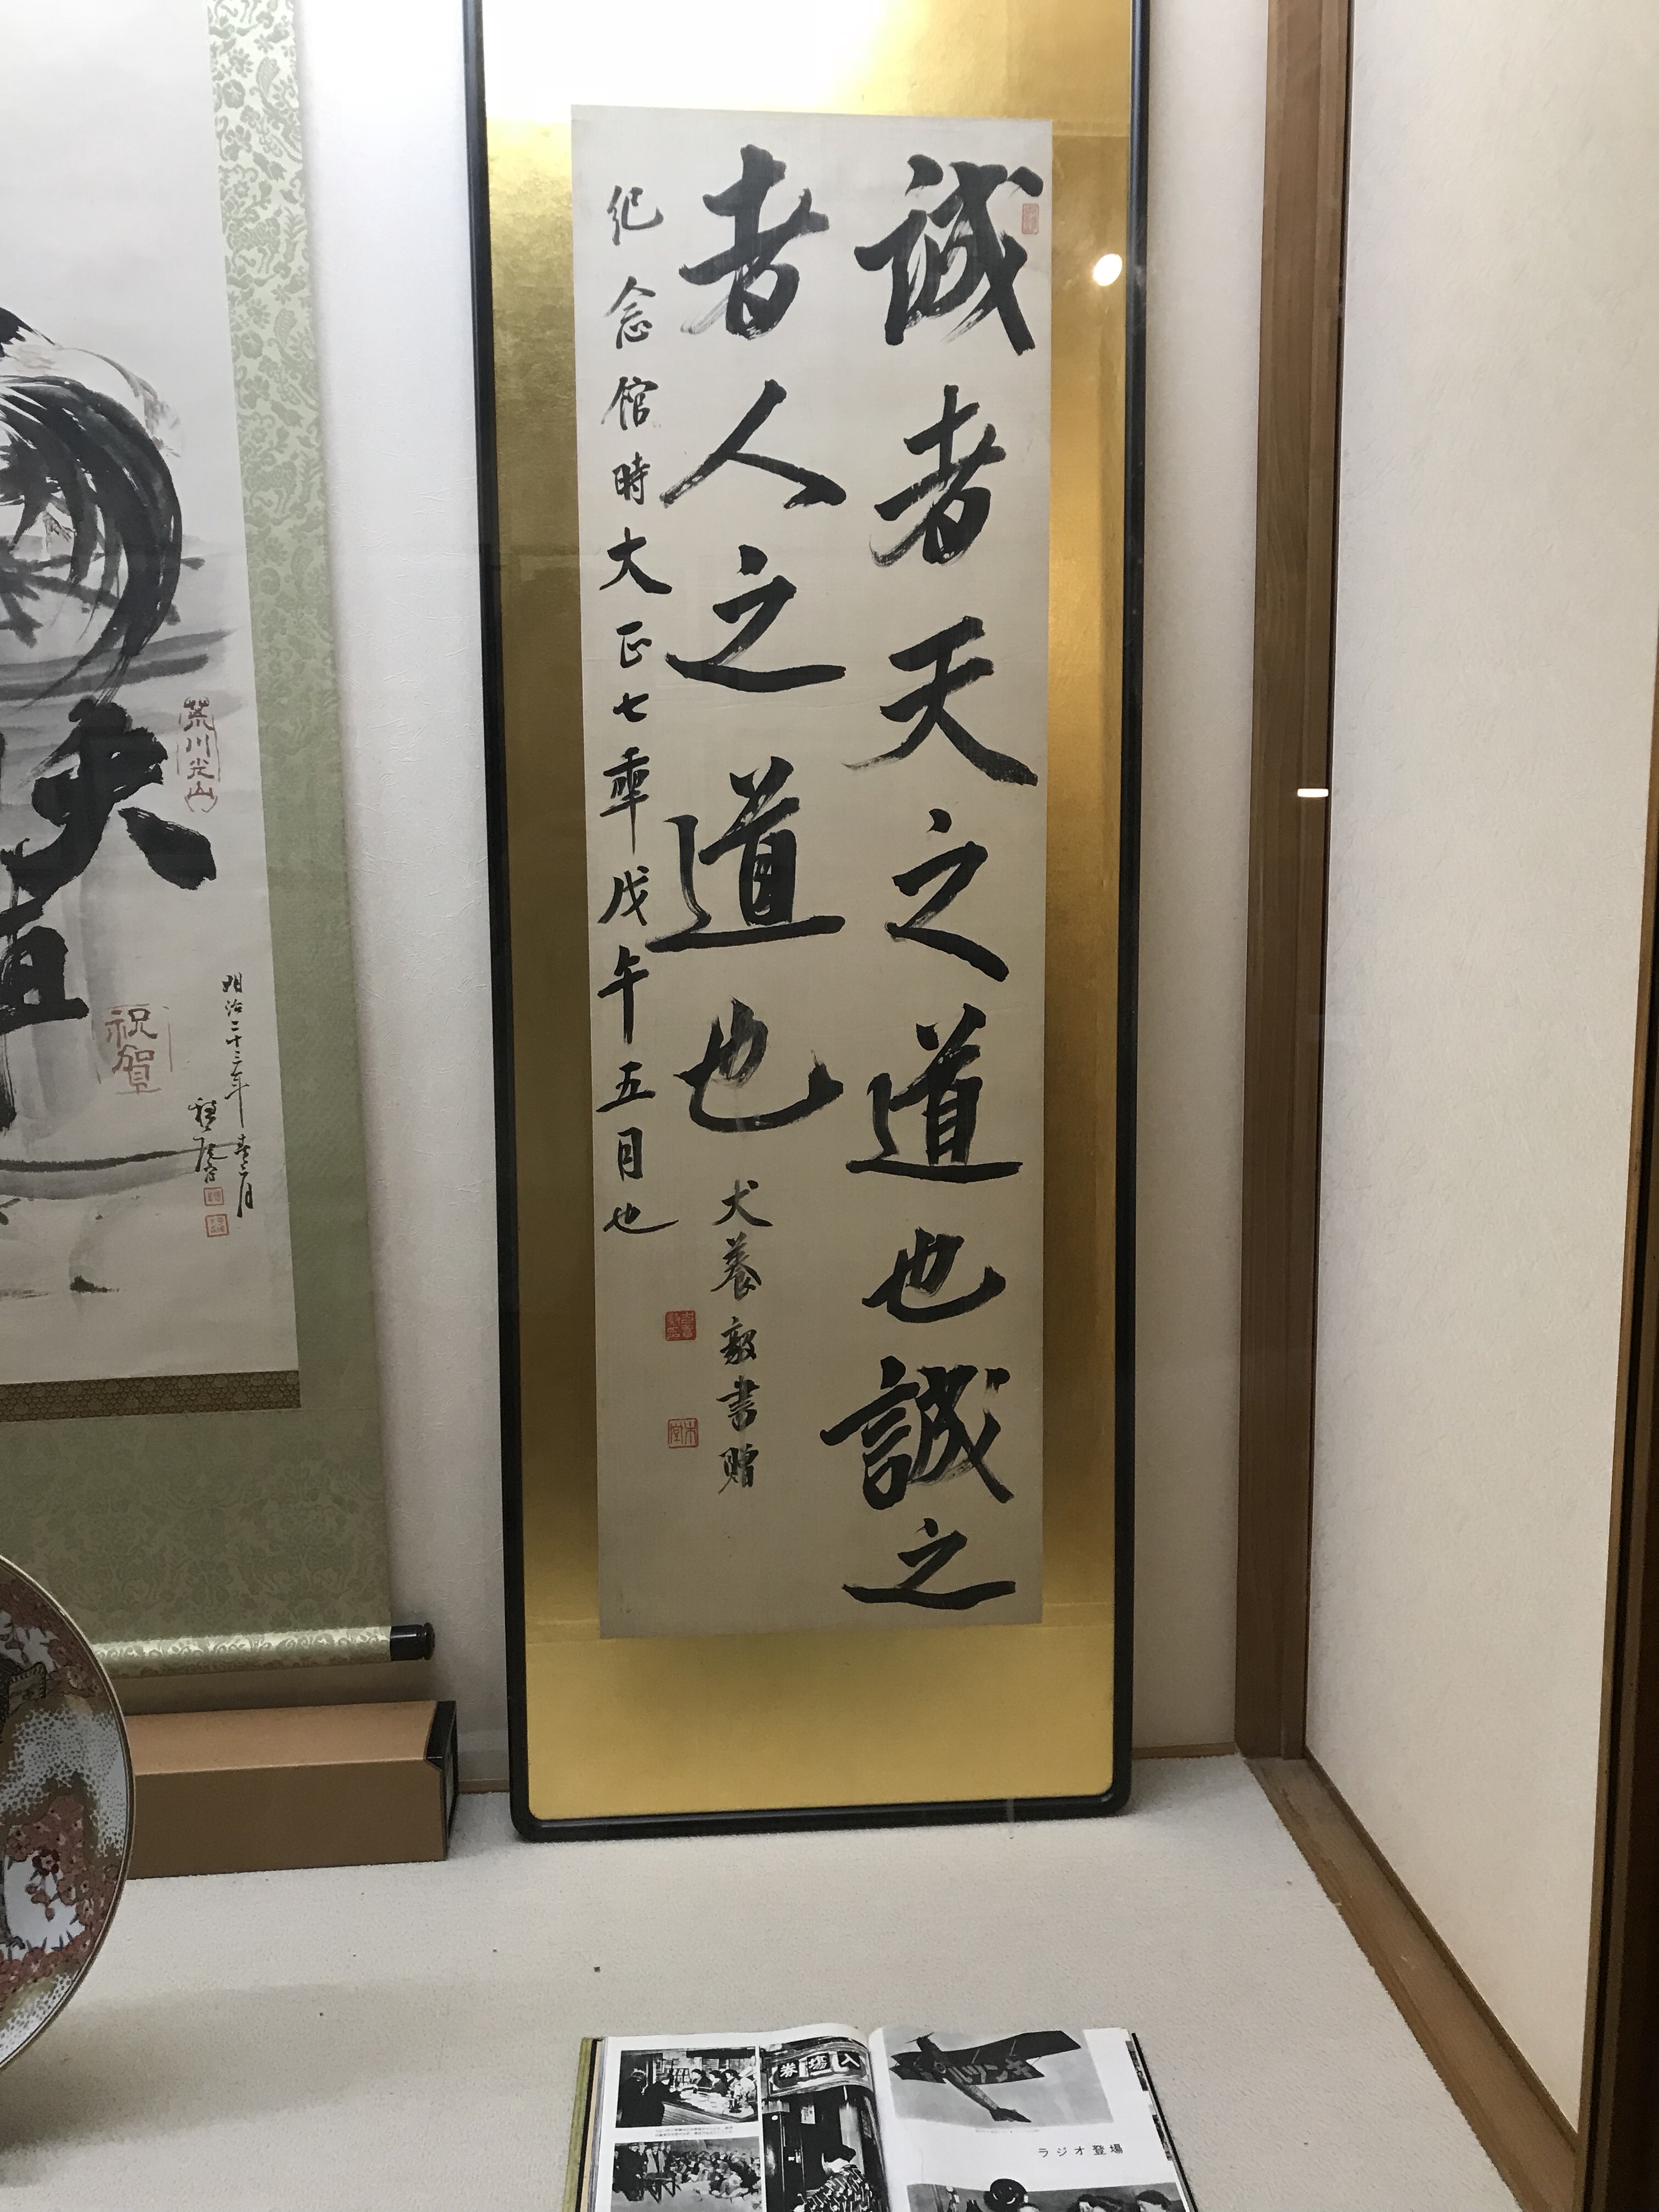 誠者天之道也誠之
者人之道也
犬養毅書贈
紀念館時大正七年戊午五月也
木堂
荒川光山
祝賀
明治二十三年春三月
入場券
ラジオ登場